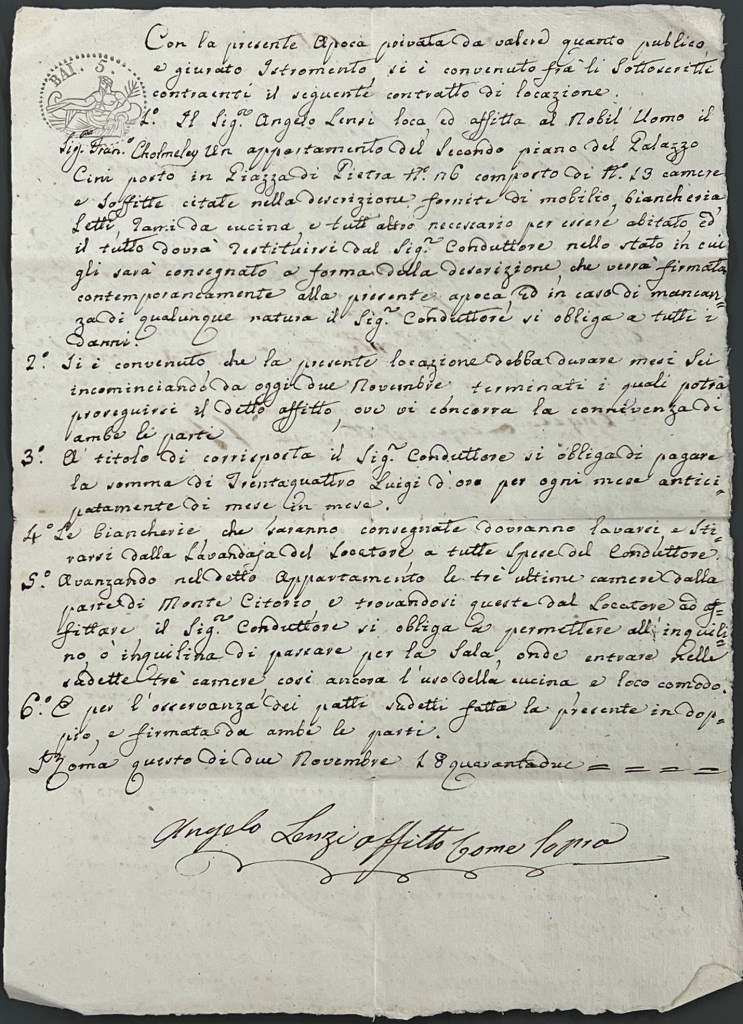 BAI 5.
Con la presente Apoca privata da valere quanto publico,
e giurato Istromento si è convenuto frà li Sottoscritti
contraenti il seguente contratto di locazione.
1.º Il Sig.re Angelo Lensi loca, ed affitta al Nobil Uomo il
Sig.re Fran.º Cholmeley Un appartamento del Secondo piano del Palazzo
Cini posto in Piazza di Pietra Nº. 26 composto di Nº. 13 camere
e Soffitte citate nella descrizione fornite di mobilio, biancheria,
Letti, Rami da cucina, e tutt'altro necessario per essere abitato, ed
il tutto dovrà Restituirsi dal Sig.re Conduttore nello stato in cui
gli sarà consegnato a forma della descrizione, che verrà firmata
contemporaneamente alla presente apoca, ed in caso di mancan=
za di qualunque natura il Sig.re Conduttore si obliga a tutti i
danni.
2.º Si è convenuto, che la presente locazione debba durare mesi Sei
incominciando da oggi due Novembre terminati i quali potrà
proseguirsi il detto affitto, ove vi concorra la connivenza di
ambe le parti
3.º A titolo di corrisposta il Sig.re Conduttore si obliga di pagare
la somma di Trentaquattro Luigi d'oro per ogni mese antici=
patamente di mese in mese.
4.º Le biancherie che saranno consegnate dovranno lavarsi, e Sti=
rarsi dalla Lavandaja del Locatore a tutte Spese del Conduttore.
5.º Avanzando nel detto Appartamento le trè ultime camere dalla
parte di Monte Citorio, e trovandosi queste dal Locatore ad af=
fittare il Sig.re Conduttore si obliga a permettere all'inquili=
no, o inquilina di passare per la Sala, onde entrare nelle
sudette trè camere così ancora l'uso della cucina, e loco comodo.
6.º E per l'osservanza dei patti sudetti fatta la presente in dop=
pio, e firmata da ambe le parti.
Roma questo dì due Novembre 18quarantadue = = = =
Angelo Lenzi affitto Come Sopra